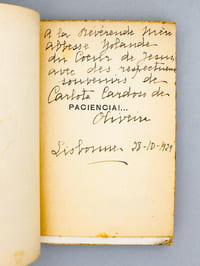 A la Révérende Mère
Abbesse Yolande
du Coeur de Jesus
avec des respectueux
souvenirs de
Carlota Cardoso de
PACIENCIA!...
Oliveira
Lisbonne 28-10-929